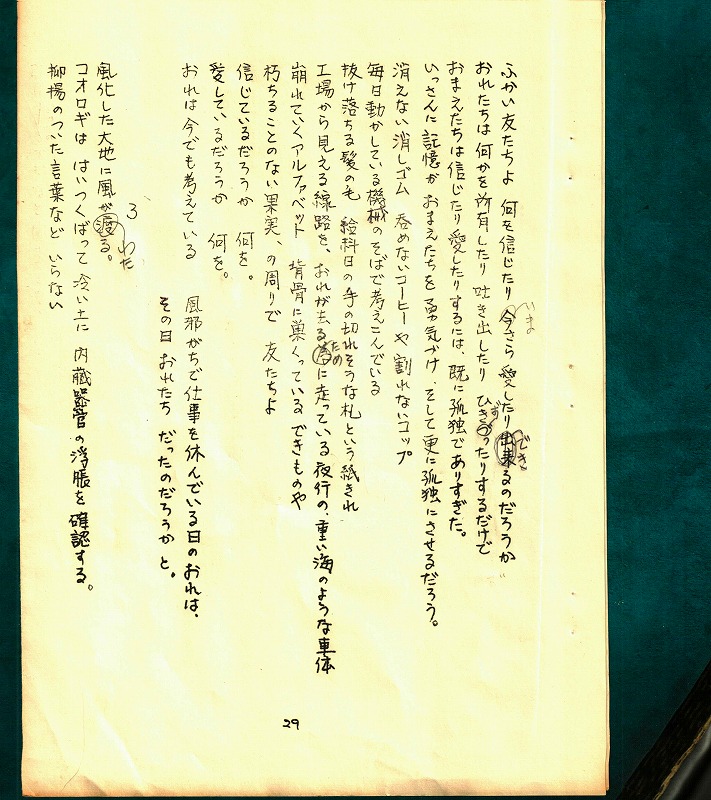 ふかい友たちよ 何を信じたり 今さら 愛したり出来るのだろうか
いま
でき
おれたちは 何かを所有したり 吐き出したり ひきつったりするだけで
ず
おまえたちは信じたり愛したりするには、既に孤独でありすぎた。
いっさんに記憶が おまえたちを 勇気づけ、そして更に孤独にさせるだろう。
消えない消しゴム 呑めないコーヒーや 割れないコップ
毎日動かしている機械のそばで考えこんでいる
抜け落ちる髪の毛 給料日の手の切れそうな札という紙きれ
工場から見える線路を、おれが去る為に走っている夜行の、重い海のような車体
ため
崩れていくアルファベット 背骨に巣くっている できものや
朽ちることのない果実、の周りで 友たちよ
信じているだろうか 何を。
愛しているだろうか 何を。
おれは今でも考えている 風邪がちで仕事を休んでいる日のおれは、
その日 おれたち だったのだろうかと。
3、
風化した大地に風が渡る。
わた
コオロギは はいつくばって 冷い土に 内蔵器管の浮脹を確認する。
抑揚のついた言葉など いらない
29